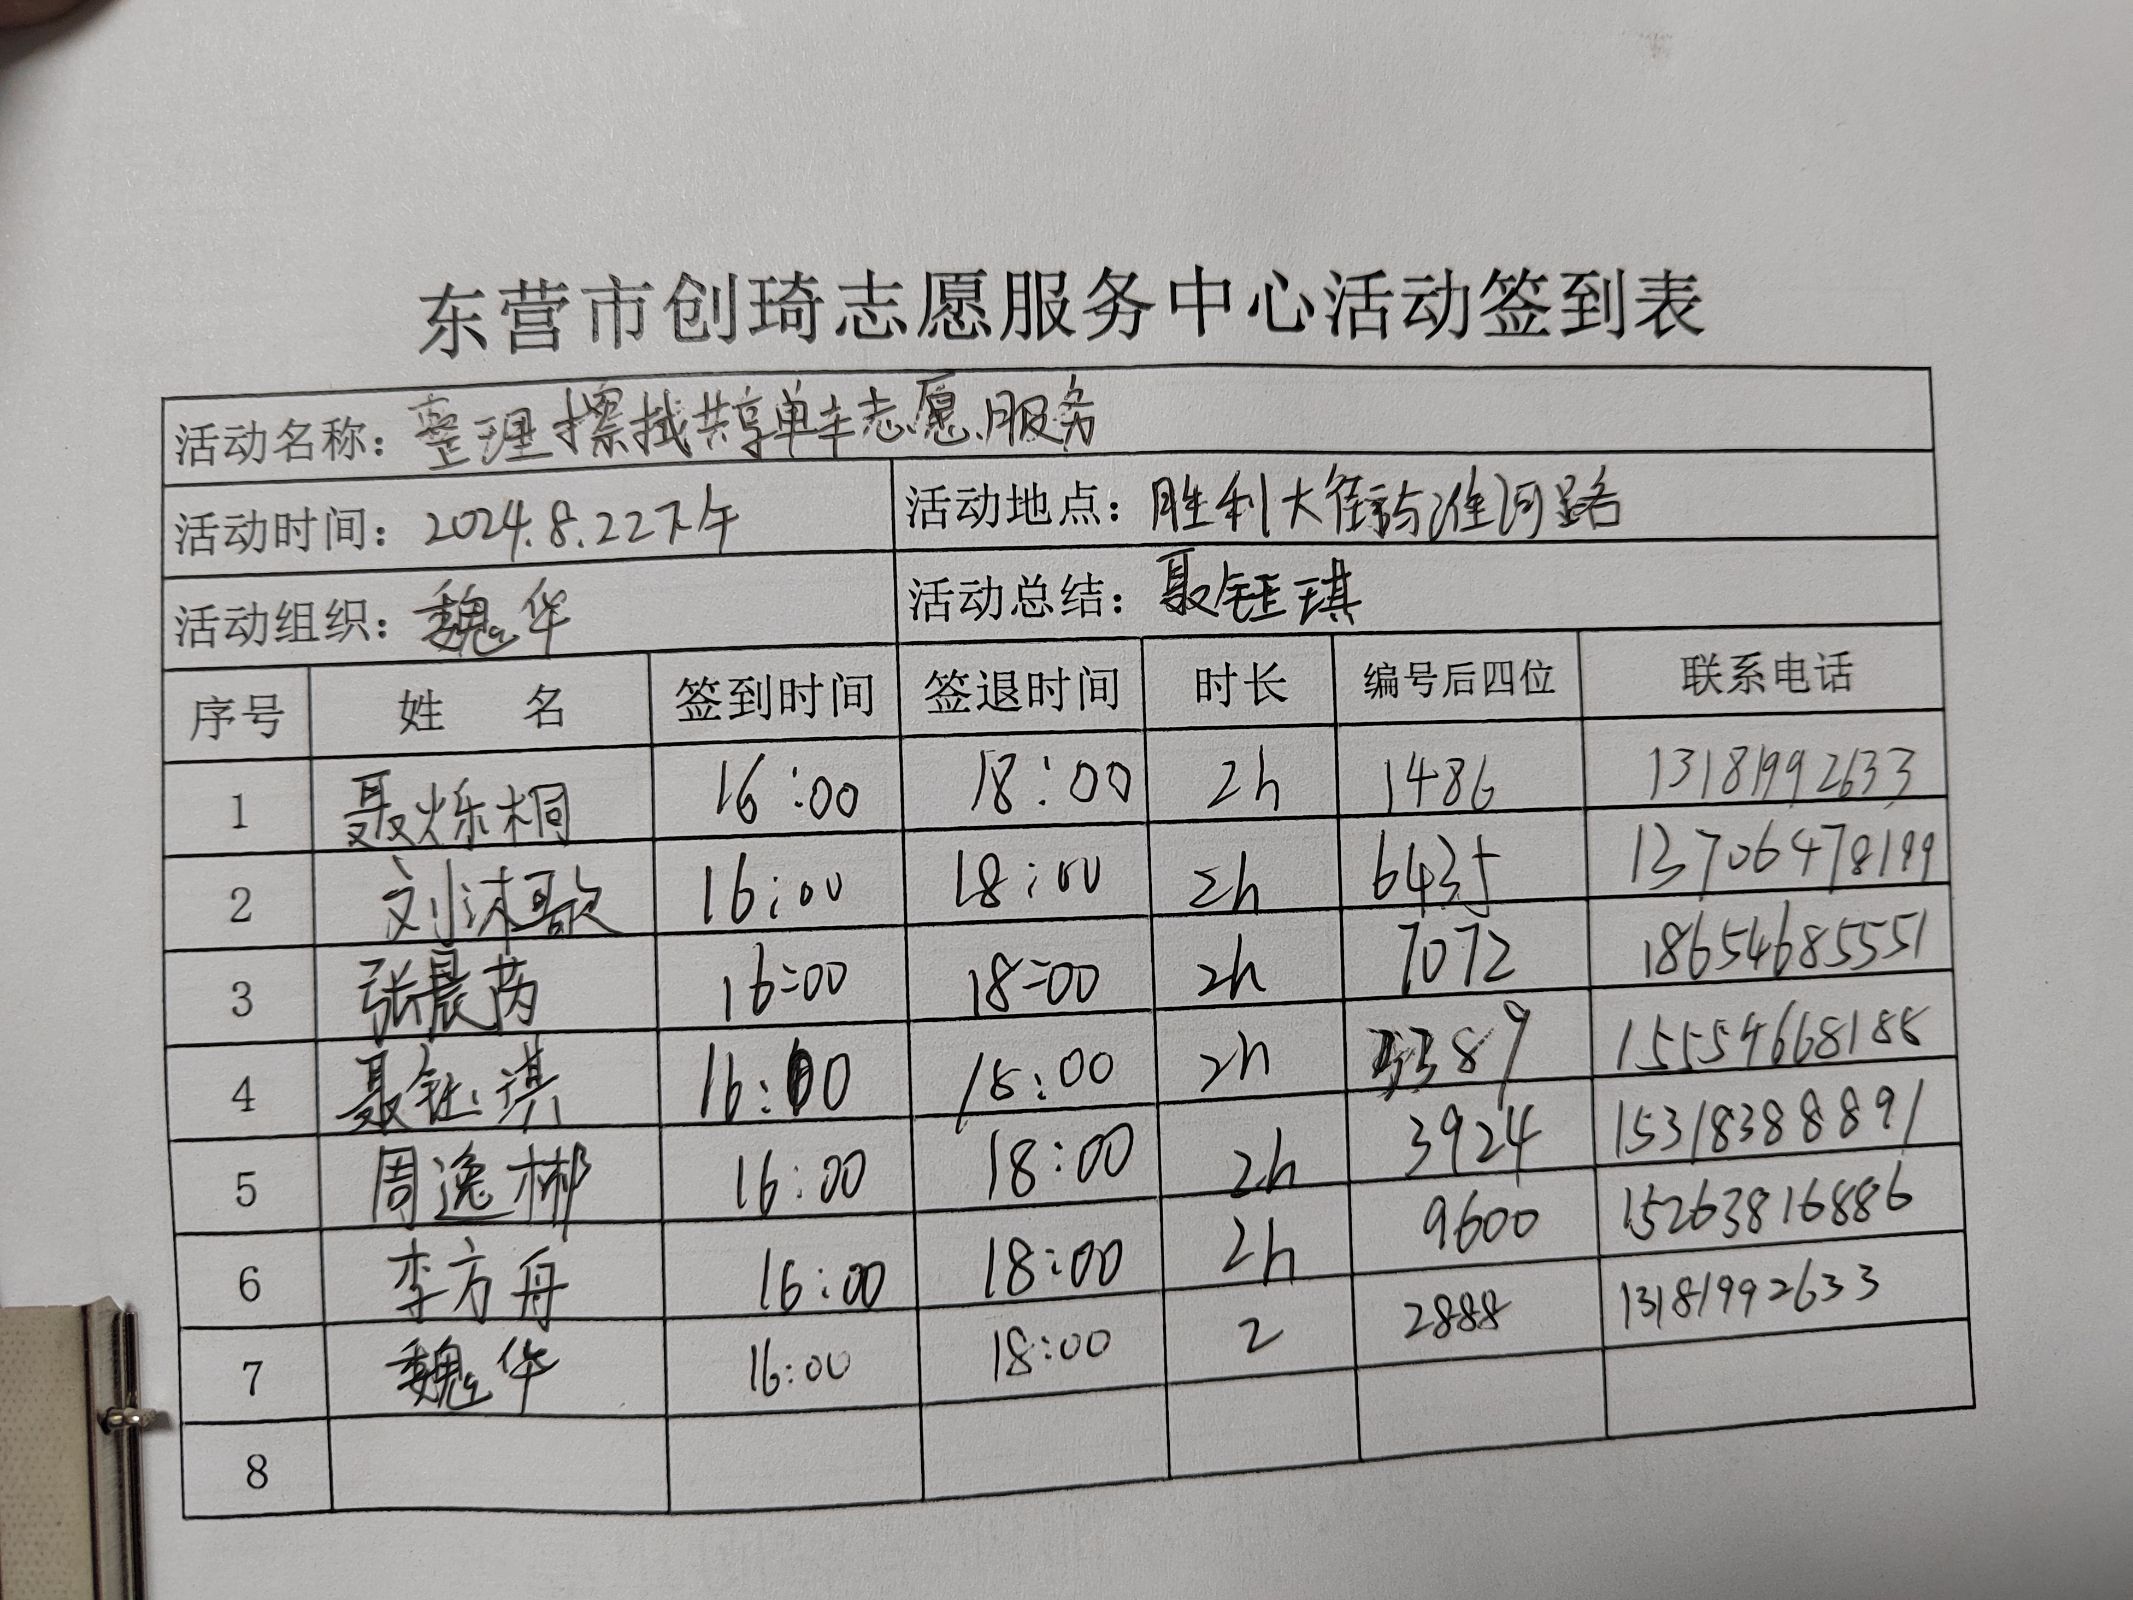 东营市创琦志愿服务中心活动签到表
活动名称：整理擦拭共享单车志愿服务
活动时间：2024.8.22下午 活动地点：胜利大街与淮河路
活动组织：魏华 活动总结：聂钰琪
序号 姓 名 签到时间 签退时间 时长 编号后四位 联系电话
1 聂烁桐 16:00 18:00 2h 1486 13181992633
2 刘沫歌 16:00 18:00 2h 6435 13706478199
3 张晨芮 16:00 18:00 2h 7072 18654685551
4 聂钰琪 16:00 18:00 2h 15554668188
5 周逸彬 16:00 18:00 2h 3924 15318388891
6 李方舟 16:00 18:00 2h 9600 15263816886
7 魏华 16:00 18:00 2 2888 13181992633
8